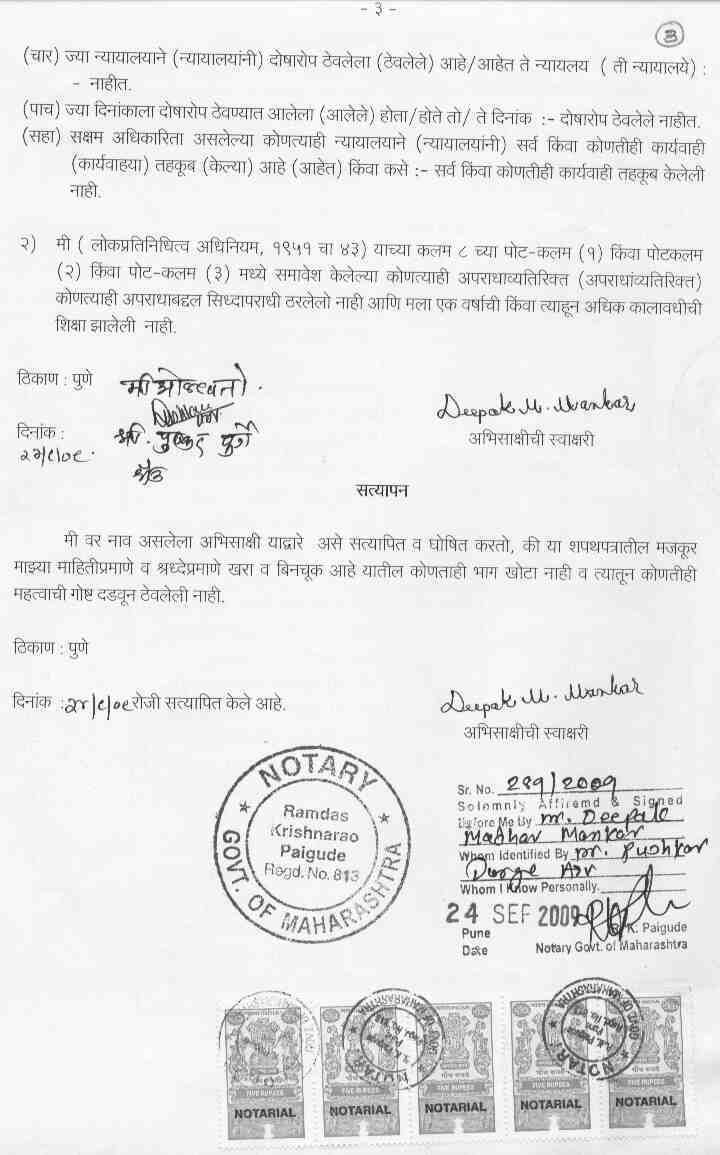 - ३ -
3
(चार) ज्या न्यायालयाने (न्यायालयांनी) दोषारोप ठेवलेला (ठेवलेले) आहे/आहेत ते न्यायलय ( ती न्यायालये) :
- नाहीत.
(पाच) ज्या दिनांकाला दोषारोप ठेवण्यात आलेला (आलेले) होता/होते तो/ ते दिनांक :- दोषारोप ठेवलेले नाहीत.
(सहा) सक्षम अधिकारिता असलेल्या कोणत्याही न्यायालयाने (न्यायालयांनी) सर्व किंवा कोणतीही कार्यवाही
(कार्यवाहया) तहकूब (केल्या) आहे (आहेत) किंवा कसे :- सर्व किंवा कोणतीही कार्यवाही तहकूब केलेली
नाही.
२) मी ( लोकप्रतिनिधित्व अधिनियम, १९५१ चा ४३) याच्या कलम ८ च्या पोट-कलम (१) किंवा पोटकलम
(२) किंवा पोट-कलम (३) मध्ये समावेश केलेल्या कोणत्याही अपराधाव्यतिरिक्त (अपराधांव्यतिरिक्त)
कोणत्याही अपराधाबद्दल सिध्दापराधी ठरलेलो नाही आणि मला एक वर्षाची किंवा त्याहून अधिक कालावधीची
शिक्षा झालेली नाही.
ठिकाण : पुणे
मी ओळखतो.
Deepak M. Mankar
दिनांक :
अभिसाक्षीची स्वाक्षरी
सत्यापन
मी वर नाव असलेला अभिसाक्षी याद्वारे असे सत्यापित व घोषित करतो, की या शपथपत्रातील मजकूर
माझ्या माहितीप्रमाणे व श्रध्देप्रमाणे खरा व बिनचूक आहे यातील कोणताही भाग खोटा नाही व त्यातून कोणतीही
महत्वाची गोष्ट दडवून ठेवलेली नाही.
ठिकाण : पुणे
दिनांक : रोजी सत्यापित केले आहे.
Deepak M. Mankar
अभिसाक्षीची स्वाक्षरी
NOTARY
GOVT. OF MAHARASHTRA
Ramdas
Krishnarao
Paigude
Regd. No. 813
Sr. No. 289/2009
Solemnly Affiremd & Signed
Before Me By Mr. Deepak
Madhav Mankar
Whom Identified By Mr. Pushkar
Durge Adv
Whom I Know Personally.
24 SEP 2009
R. K. Paigude
Pune
Date
Notary Govt. of Maharashtra
FIVE RUPEES FIVE RUPEES FIVE RUPEES FIVE RUPEES FIVE RUPEES
NOTARIAL NOTARIAL NOTARIAL NOTARIAL NOTARIAL